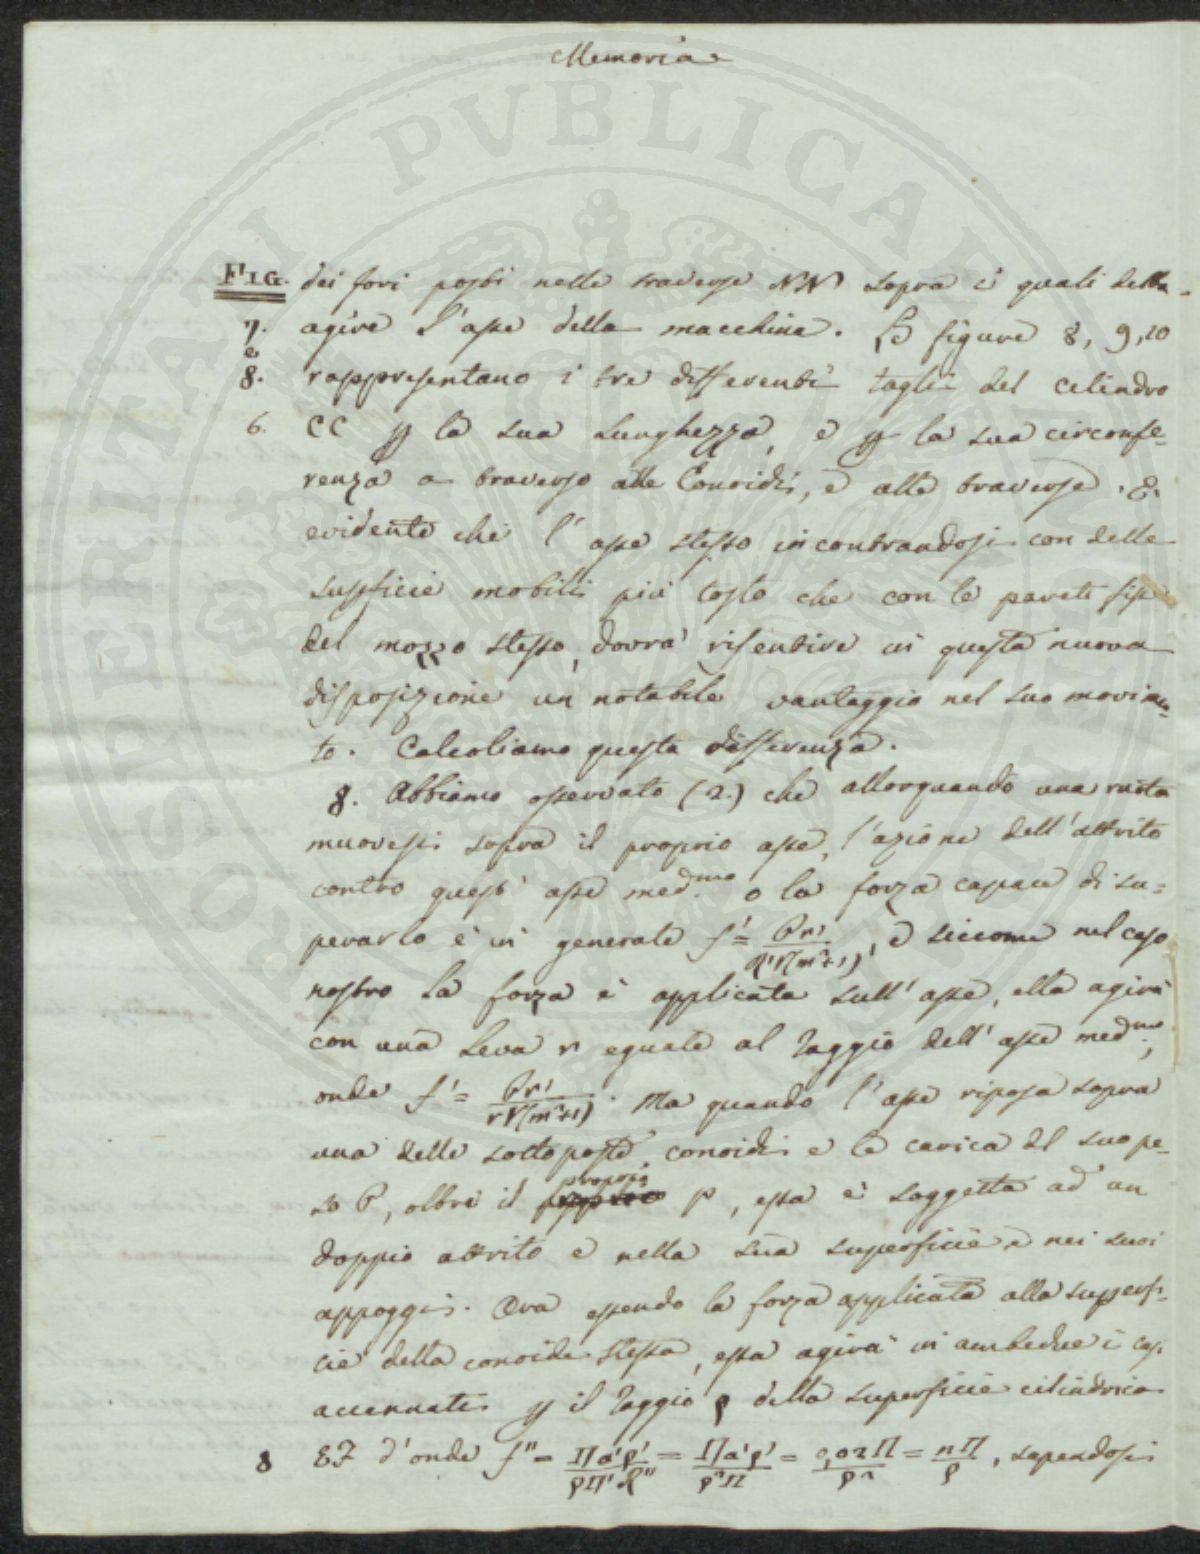 Memoria
FIG. dei fori posti nelle traverse NN sopra i quali della
7. agire l'asse della macchina. Le figure 8, 9, 10
e
8. rappresentano i tre differenti tagli del cilindro
6. CC per la sua lunghezza, e per la sua circonfe-
renza a traverso alle Conoidi, e alle traverse. È
evidente che l'asse stesso incontrandosi con delle
superficie mobili più tosto che con le pareti fisse
del mozzo stesso, dovrà risentire in questa nuova
disposizione un notabile vantaggio nel suo movimen-
to. Calcoliamo questa differenza.
8. Abbiamo osservato (2.) che allorquando una ruota
muovesi sopra il proprio asse, l'azione dell'attrito
contro quest' asse med.mo o la forza capace di su=
perarlo è in generale f' = Pr'/R'√(m²+1), e siccome nel caso
nostro la forza è applicata sull'asse, ella agirà
con una leva r eguale al raggio dell'asse med.mo;
onde f' = Pr'/r√(m²+1). Ma quando l'asse riposa sopra
una delle sottoposte conoidi e la carica del suo pe-
so P, oltre il proprio p, essa è soggetta ad un
doppio attrito e nella sua superficie e nei suoi
appoggi. Ora essendo la forza applicata alla superfi-
cie della conoide stessa, essa agirà in ambedue i casi
accennati per il raggio ρ della superficie cilindrica
8 EF d'onde f" = Πa'ρ'/ρΠ'R" = Πa'ρ'/ρ²Π = 0,02Π/ρ² = nΠ/ρ, sapendosi
PROSPERITATI PVBLICAE